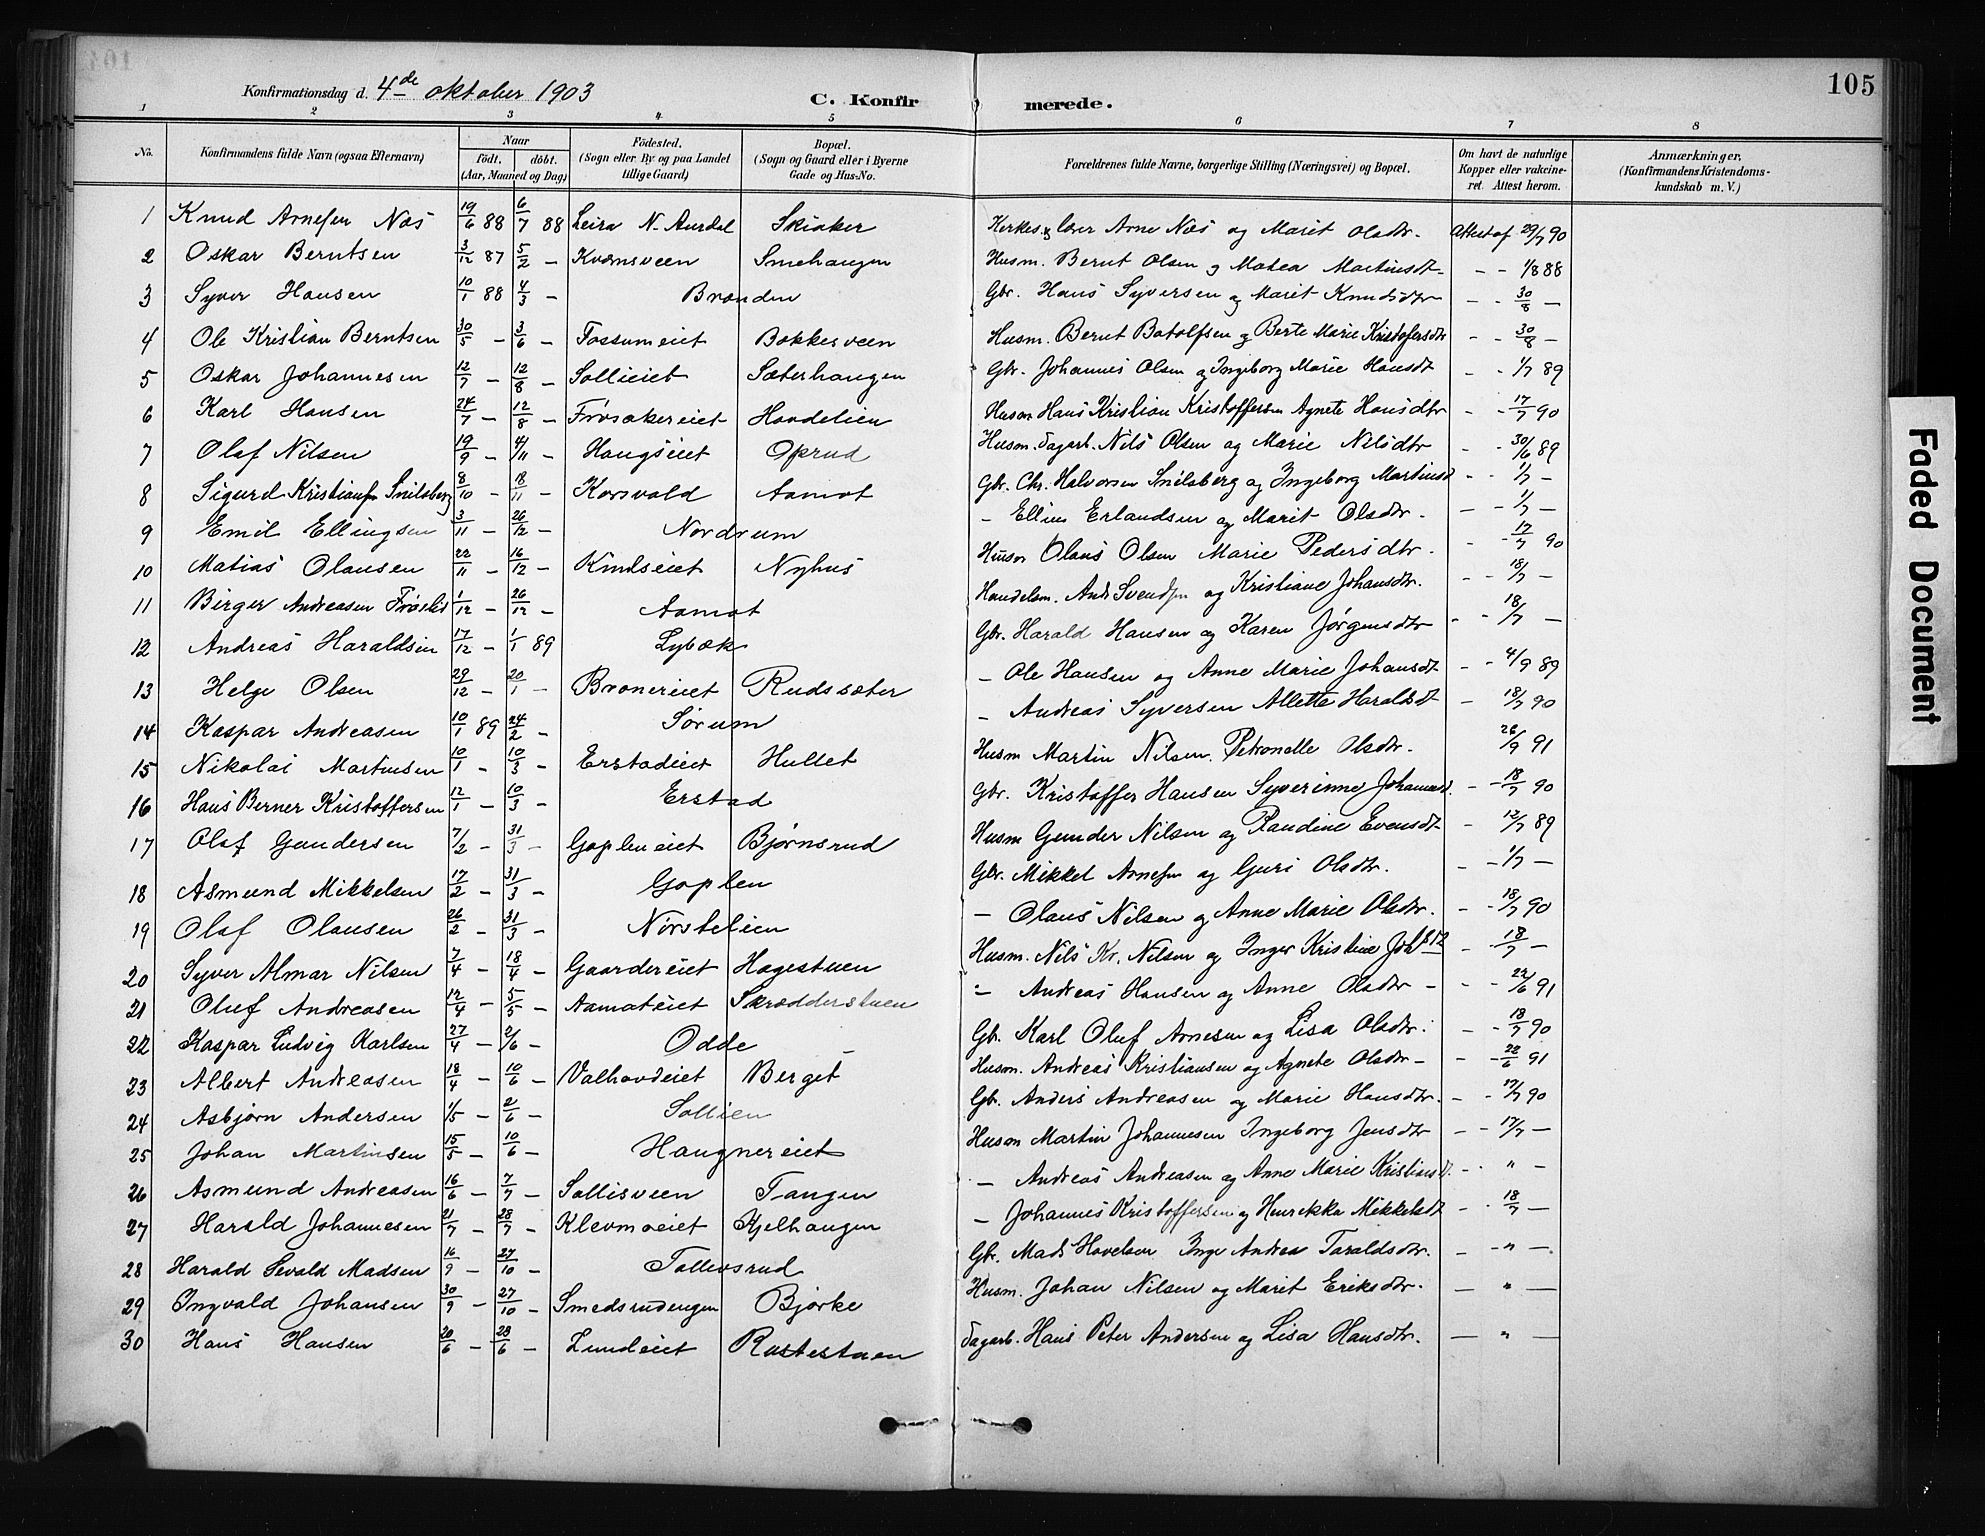 105
Konfirmationsdag d. 4de oktober 1903
C. Konfirmerede.
1 2 3 4 5 6 7 8
No. Konfirmandens fulde Navn (ogsaa Efternavn) Naar født, døbt. (Aar, Maaned og Dag) Fødested. (Sogn eller By og paa Landet tillige Gaard) Bopæl. (Sogn og Gaard eller i Byerne Gade og Hus-No. Forældrenes fulde Navne, borgerlige Stilling (Næringsvei) og Bopæl. Om havt de naturlige Kopper eller vakcineret. Attest herom. Anmærkninger. (Konfirmandens Kristendomskundskab m. V.)
1 Knud Arnesen Næs 19/6 88 6/7 88 Leira N. Aurdal Skiaker Kirkes. & lærer Arne Næs og Marit Olsdtr. Attest af 29/7 90
2 Oskar Berntsen 3/12 87 5/2 – Kværnsveen Smehaugen Husm. Bernt Olsen og Matea Martinsdt – - - 1/8 88
3 Syver Hansen 10/1 88 4/3 – Branden Gbr. Hans Syversen og Marit Knudsdtr – - 30/8 –
4 Ole Kristian Berntsen 30/5 – 3/6 – Fossumeiet Bakkesveen Husm. Bernt Botolfsen og Berte Marie Kristofersdtr - - 30/8 –
5 Oskar Johannesen 12/7 – 12/8 – Sollieiet Sæterhaugen Gbr. Johannes Olsen og Ingeborg Marie Hansdt - - 1/7 89
6 Karl Hansen 24/7 – 12/8 – Frøsakereiet Hovdelien Husm Hans Kristian Kristoffersen Agnete Hansdtr - - 17/7 90
7 Olaf Nilsen 19/9 – 4/11 – Haugseiet Oprud Husm. dagarb. Nils Olsen og Marie Nilsdtr - - 30/6 89
8 Sigurd Kristians. Snilsberg 8/10 – 18/11 – Korsvold Aamot Gbr. Chr. Halvorsen Snilsberg og Ingeborg Martinsd - - 1/7 –
9 Emil Ellingsen 3/11 – 26/12 – Nordrum – Elling Erlandsen og Marit Olsdtr. – - 1/7 –
10 Matias Olausen 22/11 – 16/12 – Kindseiet Nyhus Husm Olaus Olsen Marie Pedersdtr. - - 17/7 90
11 Birger Andreasen Frøslid 1/12 – 26/12 – Aamot Handelsm. And. Svendsen og Kristiane Johansdtr. - - 18/7 –
12 Andreas Haraldsen 17/12 – 1/1 89 Lybæk Gbr. Harald Hansen og Karen Jørgensdtr - - 18/7 –
13 Helge Olsen 29/12 – 20/1 – Bronereiet Rudssæter – Ole Hansen og Anne Marie Johansdt - - 4/9 89
14 Kaspar Andreasen 10/1 89 24/2 – Sørum – Andreas Syversen Allette Haraldsdt – 18/7 90
15 Nikolai Martinsen 10/1 – 10/3 – Erstadieiet Hullet Husm Martin Nilsen. Petronelle Olsdtr. 26/9 91
16 Hans Berner Kristoffersen 12/1 – 10/3 – Erstad Gbr. Kristoffer Hansen Syverinne Johannesd. - - 18/7 90
17 Olaf Gundersen 7/2 – 31/3 – Gopleneiet Bjørnsrud Husm Gunder Nilsen og Randine Evensdt – 12/7 89
18 Asmund Mikkelsen 17/2 – 31/3 – Goplen Gbr. Mikkel Arnesen og Guri Olsdtr. - - 1/7 –
19 Olaf Olausen 26/2 – 31/3 – Nørstelien – Olaus Nilsen og Anne Marie Olsdtr. - - 18/7 90
20 Syver Almar Nilsen 7/4 – 18/4 – Gaardereiet Hagestuen Husm. Nils Kr. Nilsen og Inger Kristine Johsdt - - 18/7 –
21 Oluf Andreasen 12/4 – 5/5 – Aamoteiet Skrædderstuen – Andreas Hansen og Anne Olsdtr – - - 22/6 91
22 Kaspar Ludvig Karlsen 27/4 – 2/6 – Odde Gb. Karl Oluf Arnesen og Lisa Olsdtr. - - 18/7 90
23 Albert Andreasen 18/4 – 10/6 – Valhovdeiet Berget Husm. Andreas Kristiansen og Agnete Olsdtr – - - 22/6 91
24 Asbjørn Andersen 1/5 – 2/6 – Sollien Gb. Anders Andreasen og Marie Hansdtr. - - 17/7 90
25 Johan Martinsen 15/5 – 10/6 – Haugnereiet Husm Martin Johannesen Ingeborg Jensdtr – - 17/7 –
26 Asmund Andreasen 16/6 – 7/7 – Sollisveen Tangen – Andreas Andreasen og Anne Marie Kristiansd. - - " –
27 Harald Johannesen 21/7 – 28/7 – Klevmoeiet Kjelhaugen – Johannes Kristoffersen og Henrikka Mikkelsdt - - 18/7 –
28 Harald Sevald Madsen 16/9 – 27/10 – Tollevsrud Gbr. Mads Hovelsen Inge Andrea Taraldsdtr. – - " –
29 Ingvald Johansen 30/9 – 27/10 – Smedsrudengen Bjørke Husm. Johan Nilsen og Marit Eriksdtr. — " —
30 Hans Hansen 20/6 – 28/6 – Lundeiet Rastestuen Dagarb. Hans Peter Andersen og Lisa Hansdtr. — " —
Faded Document